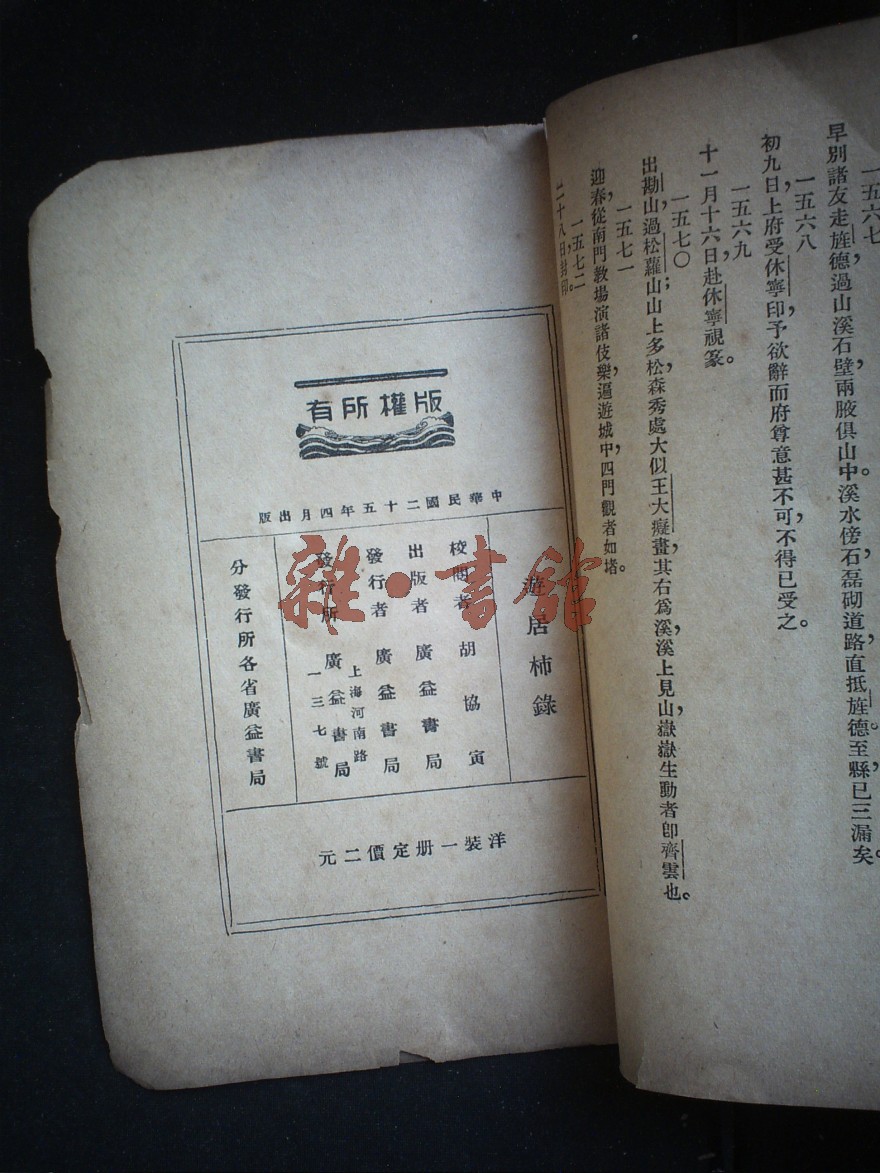 一五六七
早別諸友走旌德過山溪石壁兩腋俱山中溪水傍石磊砌道路直抵旌德。至縣已三漏矣。
一五六八
初九日上府受休寧印，予欲辭而府尊意甚不可，不得已受之。
一五六九
十一月十六日，赴休寧視篆。
一五七〇
出勘山，過松蘿山；山上多松，森秀處大似王大癡畫，其右爲溪，溪上見山，嶽嶽生動者即齊雲也。
一五七一
迎春，從南門教場演諸伎樂，遍遊城中，四門觀者如堵。
一五七二
二十八日，封印。
版權所有
中華民國二十五年四月出版
游居柿錄
校閱者 胡協寅
出版者 廣益書局
發行者 廣益書局
發行所 廣益書局
上海河南路
一三七號
分發行所各省廣益書局
洋裝一册定價二元
雜·書館